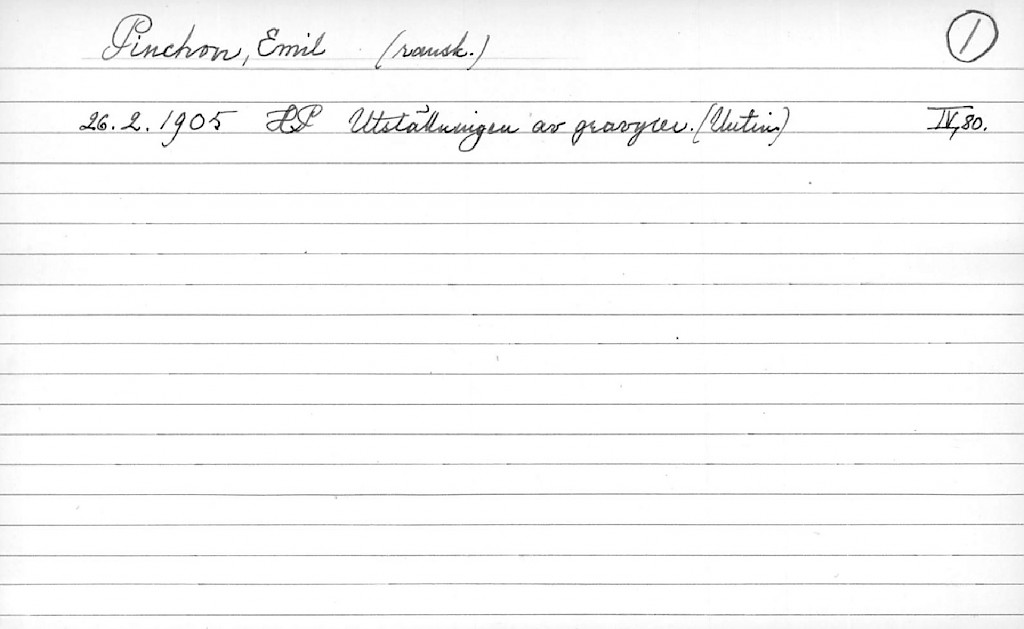 Pinchon, Emil (ransk.) 1
26.2.1905 HP Utställningen av gravyrer. (Uutin.) IV,80.